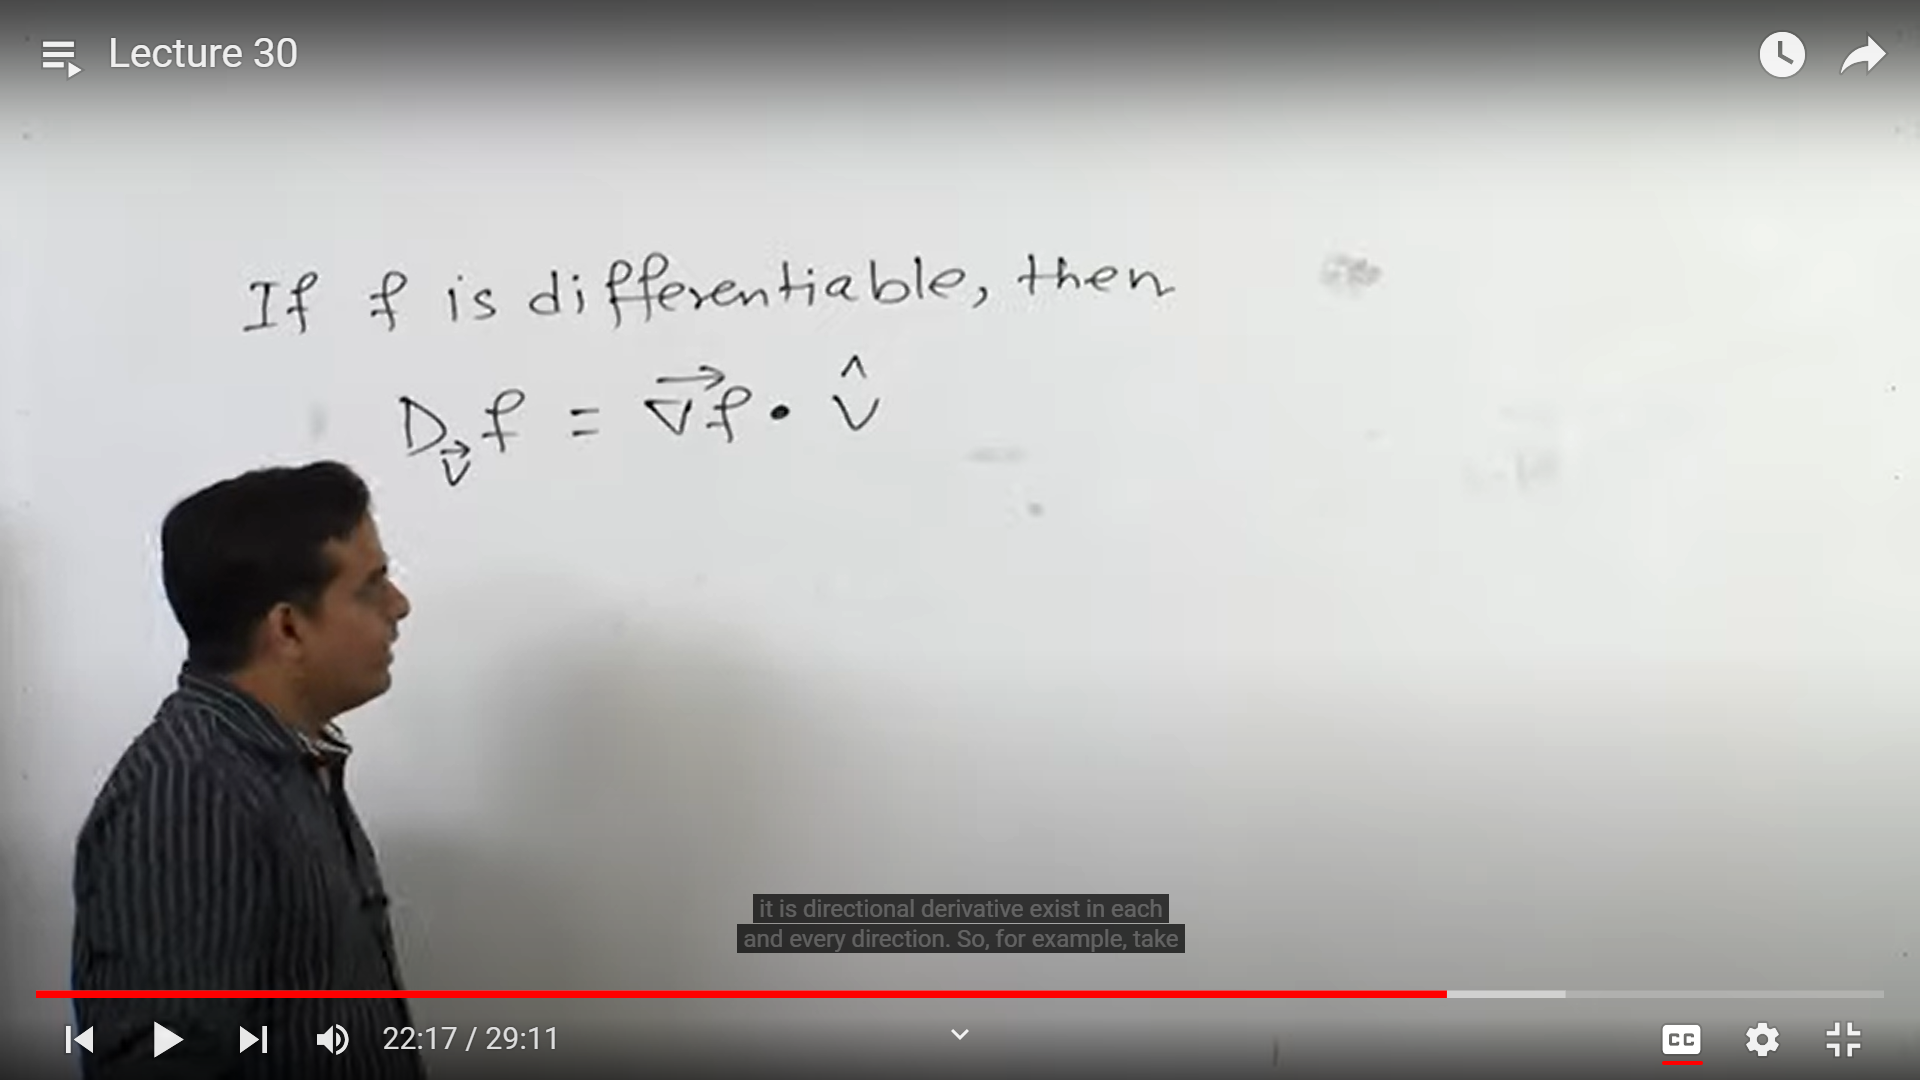 Lecture 30
If f is differentiable, then
D_{\vec{v}} f = \vec{∇f} • \hat{v}
it is directional derivative exist in each
and every direction. So, for example, take
22:17 / 29:11
CC